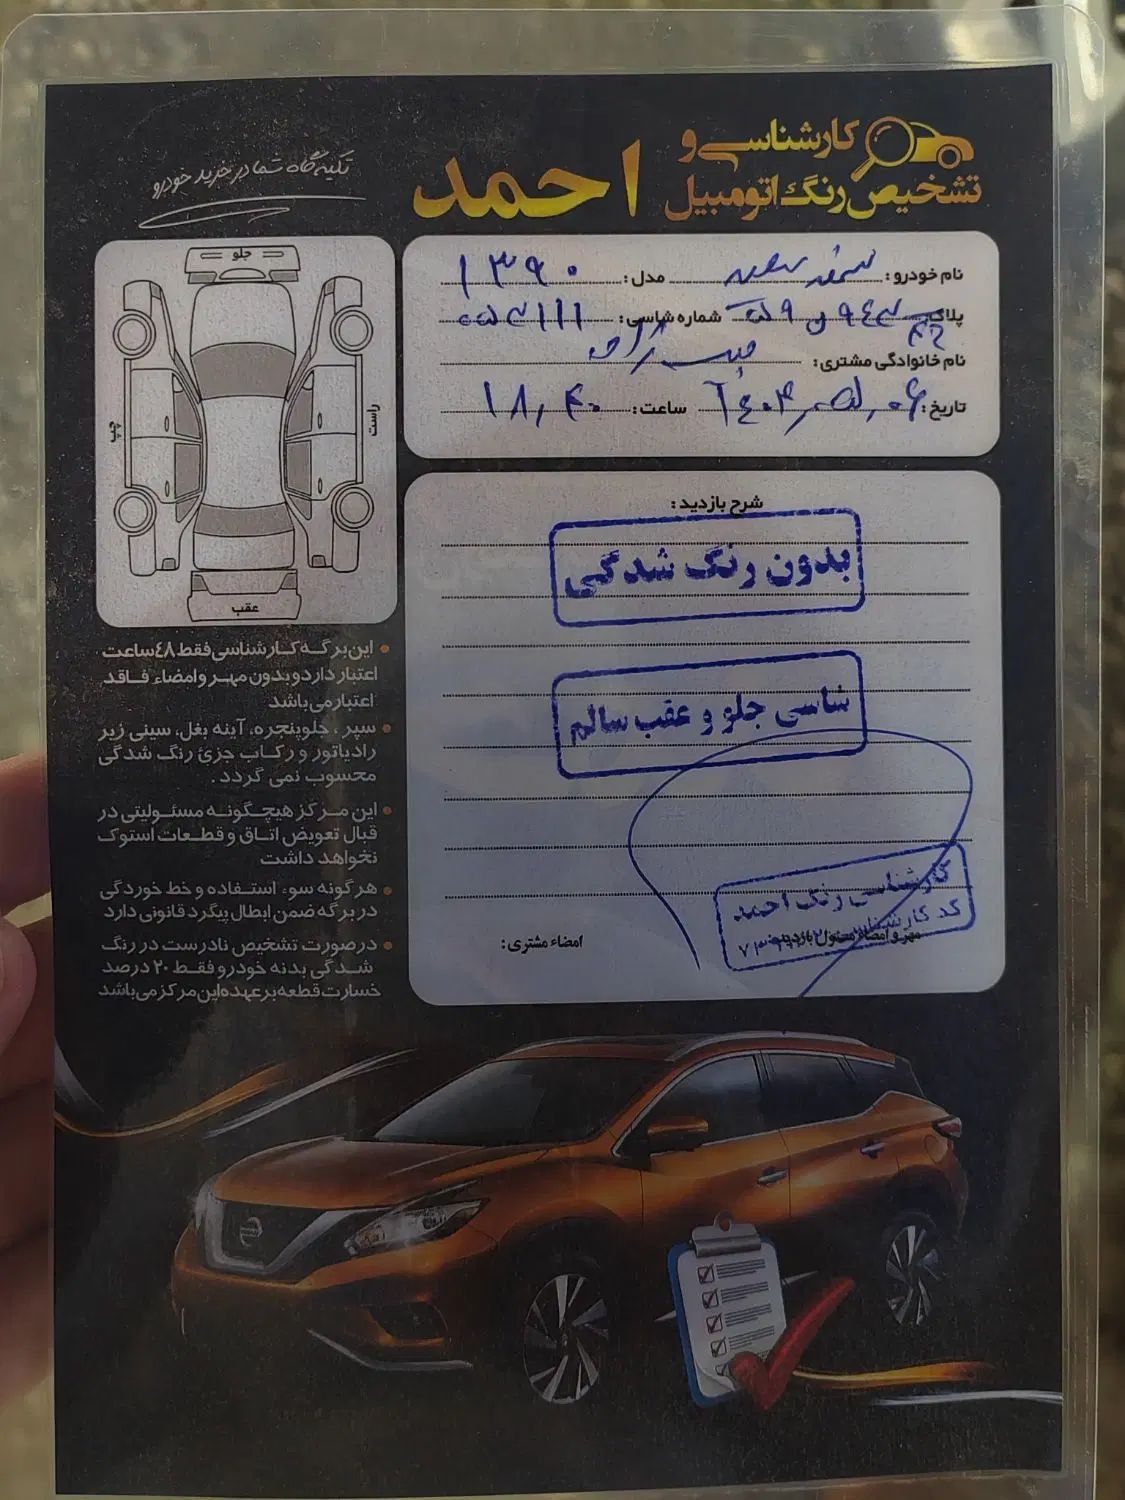 کارشناسی و
تشخیص رنگ اتومبیل
احمد
تکیه گاه شما در خرید خودرو
نام خودرو: سمند سفید مدل: ۱۳۹۰
پلاک: شماره شاسی: ۰۵۲۱۱۱
نام خانوادگی مشتری:
تاریخ: ساعت: ۱۸,۴۰
جلو
چپ
راست
عقب
شرح بازدید:
بدون رنگ شدگی
شاسی جلو و عقب سالم
کارشناسی رنگ احمد
کد کارشناسی
مهر و امضاء مسئول بازدید:
امضاء مشتری:
این برگه کارشناسی فقط ٤٨ ساعت
اعتبار دارد و بدون مهر و امضاء فاقد
اعتبار می باشد
سپر ، جلوپنجره، آینه بغل، سینی زیر
رادیاتور و رکاب جزئ رنگ شدگی
محسوب نمی گردد .
این مرکز هیچگونه مسئولیتی در
قبال تعویض اتاق و قطعات استوک
نخواهد داشت
هرگونه سوء استفاده و خط خوردگی
در برگه ضمن ابطال پیگرد قانونی دارد
درصورت تشخیص نادرست در رنگ
شدگی بدنه خودرو فقط ۲۰ درصد
خسارت قطعه برعهده این مرکز می باشد